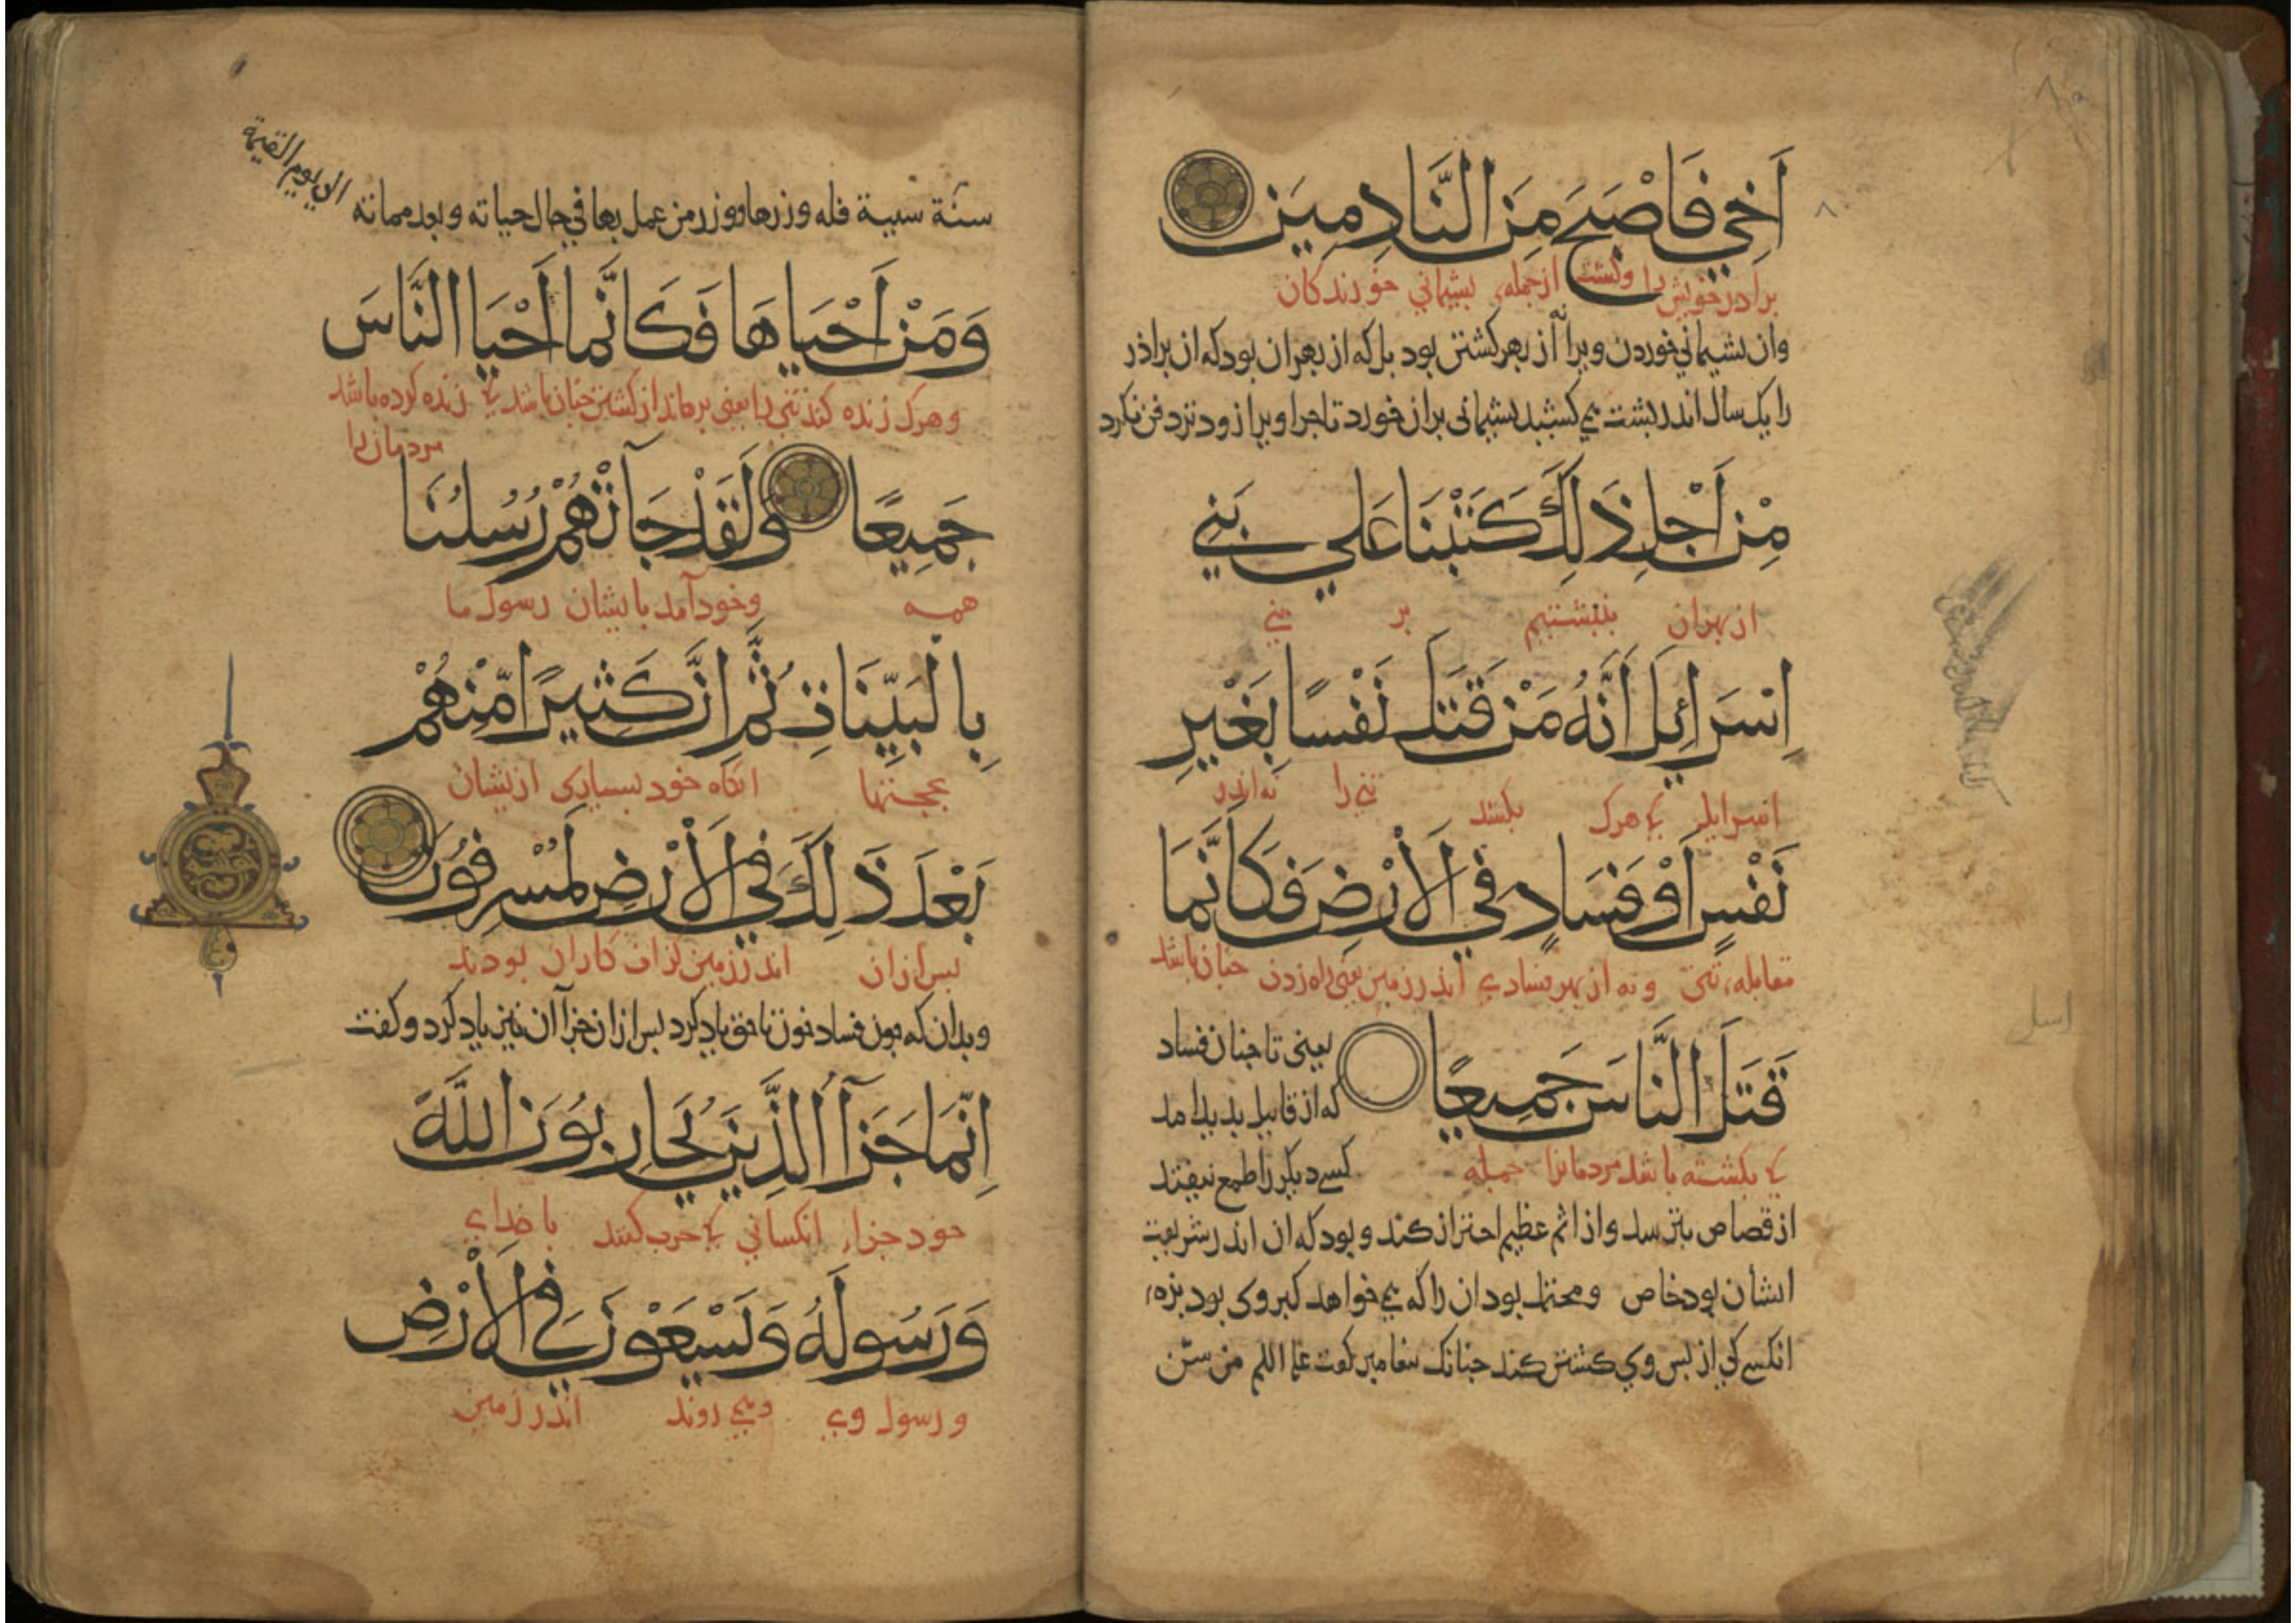 اَخِي فَاَصْبَحَ مِنَ النَّادِمِينَ
برادر خویش را وکشت از جمله پشیمانی خورندکان
وان بشیمانی خوردن ویرا نه از بهر کشتن بود بل که از بهر ان بود که ان براذر
را یک سال اندر بشت می کشید بشیمانی بران خورد تا جرا ویرا زودتر دفن نکرد
مِنْ اَجْلِ ذَلِكَ كَتَبْنَا عَلَي بَنِي
از بهر ان بنبشتیم بر بنی
اِسْرَائِلَ اَنَّهُ مَنْ قَتَلَ نَفْسًا بِغَيْرِ
اسرایل کی هرک بکشد تنی را نه اندر
نَفْسٍ اَوْ فَسَادٍ فِي الْاَرْضِ فَكَاَنَّمَا
مقابله تنی و نه از بهر فسادی اندر زمین یعنی راه زدن جنان باشد
قَتَلَ النَّاسَ جَمِيعًا
یعنی تا جنان فساد
که از قابیل بدید امد
کی بکشته باشد مردمانرا جمله
کسی دیکر را طمع نیفتد
از قصاص بترسد و از اثم عظیم احتراز کند و بود که ان اندر شریعت
ایشان بود خاص و محتمل بود ان را که می خواهد کبر وی بود بزه
انکسی کی از بس وی کشتن کند جنانک بیغامبر کفت علیه السلم من سنّ
سنة سيية فله وزرها ووزر من عمل بها في حال حياته وبعد مماته
الی یوم القیمة
وَمَنْ اَحْيَاهَا فَكَاَنَّمَا اَحْيَا النَّاسَ
و هرک زنده کند تنی را یعنی برهاند از کشتن جنان باشد کی زنده کرده باشد
مردمان را
جَمِيعًا وَلَقَدْ جَآتْهُمْ رُسُلُنَا
همه وخود آمد بایشان رسول ما
بِالْبَيِّنَاتِ ثُمَّ اِنَّ كَثِيرًا مِّنْهُمْ
بحجتها انکاه خود بسیاری ازیشان
بَعْدَ ذَلِكَ فِي الْاَرْضِ لَمُسْرِفُونَ
بس از ان اندر زمین کزاف کاران بودند
وبدان که جون فساد خون ناحق یاد کرد بس از ان جزآ آن نیز یاد کرد و کفت
اِنَّمَا جَزَآُ الَّذِينَ يُحَارِبُونَ اللَّهَ
خود جزاء انکسانی کی حرب کنند با خدای
وَرَسُولَهُ وَيَسْعَوْنَ فِي الْاَرْضِ
و رسول وی ومی روند اندر زمین